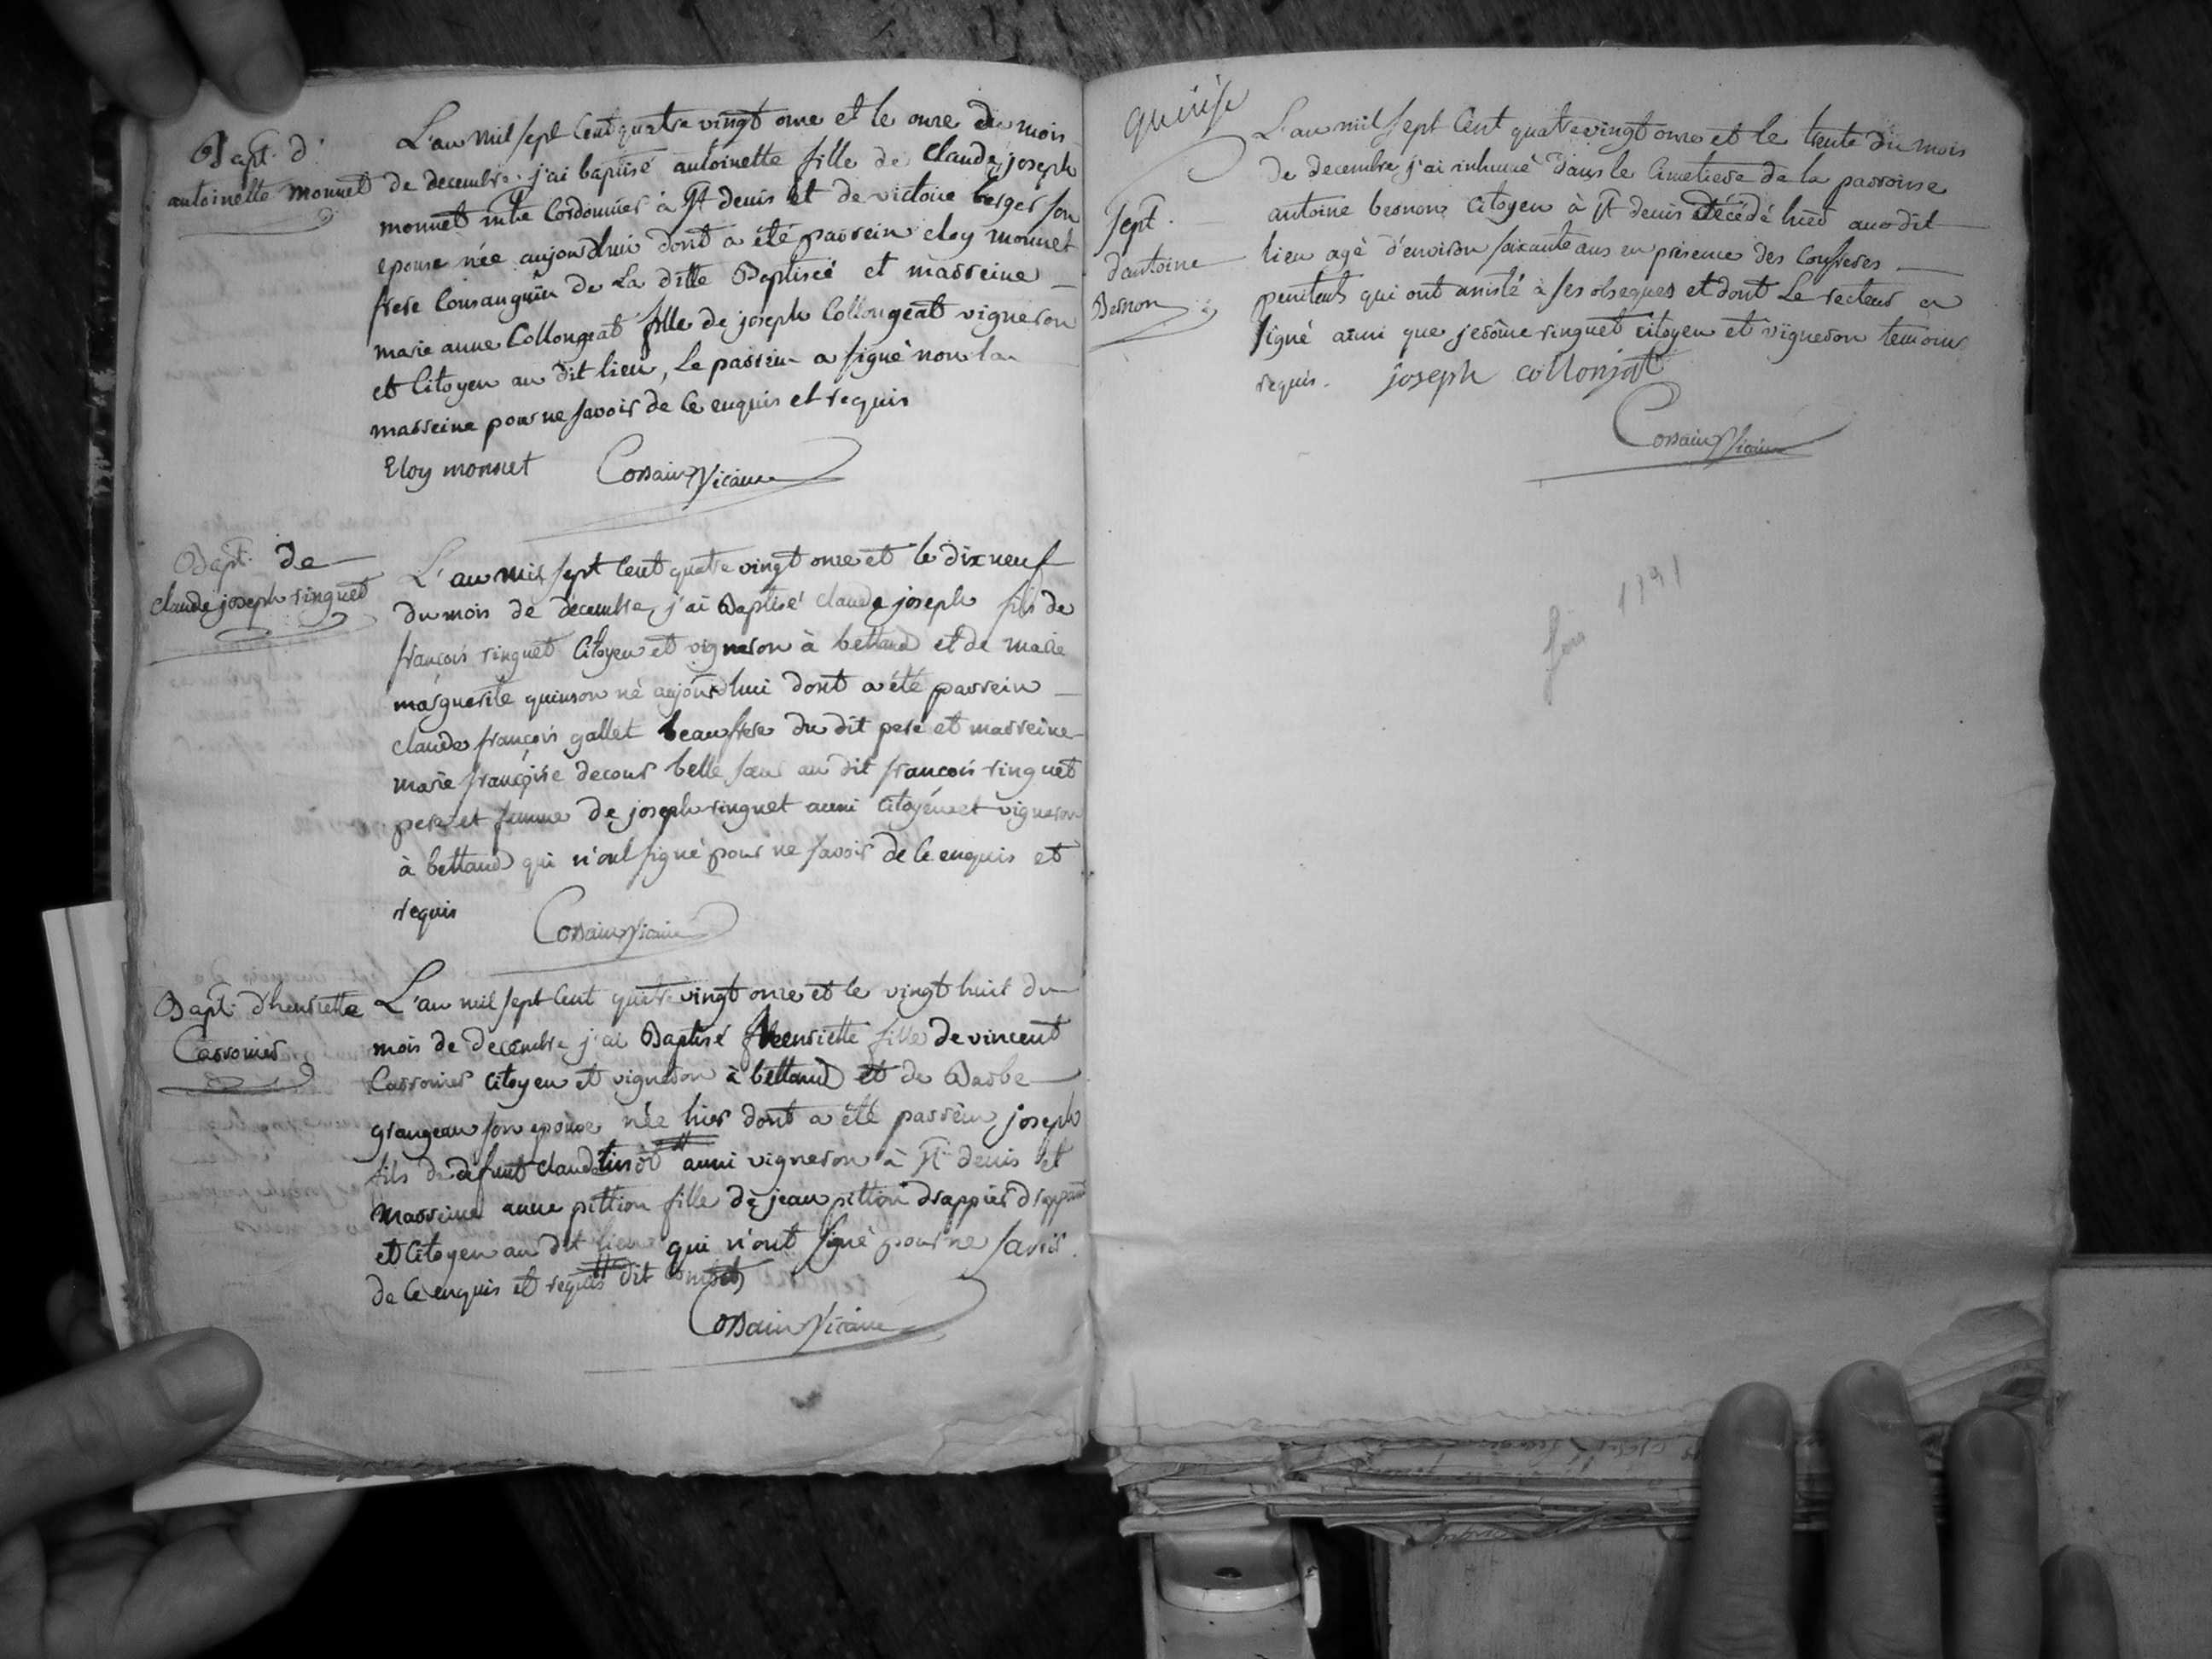 Bapt. d'
antoinette monnet
L'an mil sept Cent quatre vingt onze et le onze du mois
de decembre. j'ai baptisé antoinette fille de Claude joseph
monnet Cordonnier à St denis et de victoire berger son
epouse née aujourdhui dont a été parrein eloy monnet
frere Consanguin de La ditte Baptiseé et marreine
marie anne Collongeat fille de joseph Collongeat vigneron
et Citoyen au dit lieu, Le parrein a signé non la
marreine pour ne savoir de Ce enquis et requis
Eloy monnet Cossain Vicaire
Bapt. de
claude joseph ringuet
L'an mil sept Cent quatre vingt onze et le dix neuf
du mois de decembre, j'ai Baptisé claude joseph fils de
françois ringuet Citoyen et vigneron à bettand et de marie
marguerite quinson né aujourdhui dont a été parrein
claude françois gallet beaufrere du dit pere et marreine
marie françoise decour belle sœur au dit françois ringuet
pere et femme de joseph ringuet aussi Citoyen et vigneron
à bettand qui n'ont signé pour ne savoir de Ce enquis et
requis
Cossain Vicaire
Bapt. d'henriette
Carronier
L'an mil sept Cent quatre vingt onze et le vingt huit du
mois de decembre j'ai Baptisé henriette fille de vincent
Carronier Citoyen et vigneron à bettand et de Barbe
grangean son epouse née hier dont a été parrein joseph
fils de defunt claude aussi vigneron à St denis et
marreine anne pittion fille de jean pittion drappier drappant
et Citoyen au dit lieu qui n'ont signé pour ne savoir
de Ce enquis et requis dit
Cossain Vicaire
L'an mil sept Cent quatre vingt onze et le trente du mois
de decembre j'ai inhumé dans le Cimetiere de la parroisse
antoine besnon Citoyen à St denis décédé hier audit
lieu agé d'environ soixante ans en présence des Confreres
penitents qui ont assisté à ses obseques et dont Le recteur a
signé ainsi que jerôme ringuet citoyen et vigneron temoins
requis. joseph collonjat
Cossain Vicaire
Sept.
d'antoine
Besnon
fin 1791